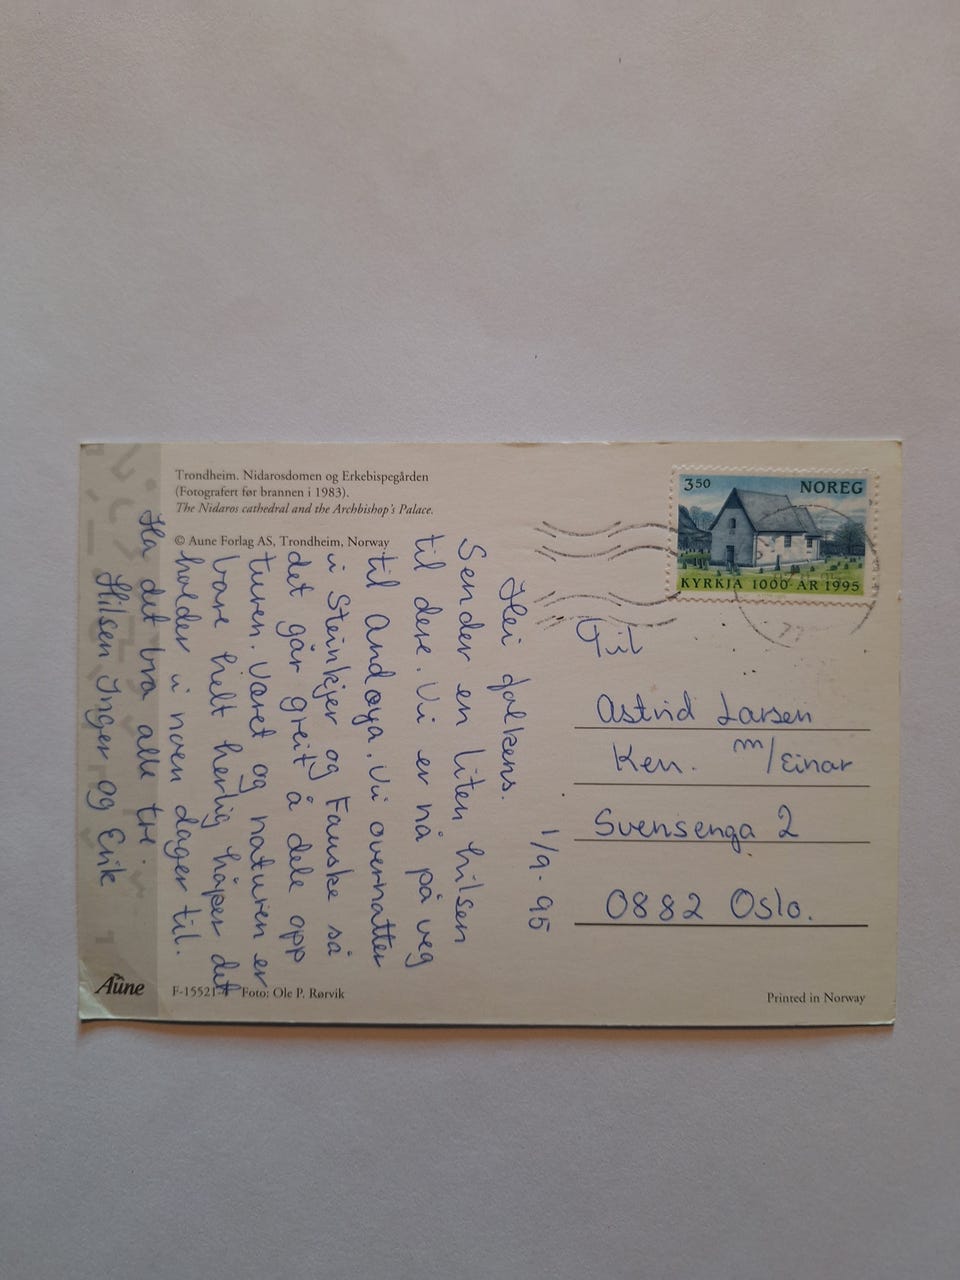 Trondheim. Nidarosdomen og Erkebispegården
(Fotografert før brannen i 1983).
The Nidaros cathedral and the Archbishop's Palace.
© Aune Forlag AS, Trondheim, Norway
1/9-95
Hei folkens.
Sender en liten hilsen
til dere. Vi er nå på veg
til Andøya. Vi overnatter
i Steinkjer og Fauske så
det går greit å dele opp
turen. Været og naturen er
bare helt herlig håper det
holder i noen dager til.
Ha det bra alle tre.
Hilsen Inger og Erik
350 NOREG
KYRKJA 1000 ÅR 1995
Til
Astrid Larsen
Ken. m/Einar
Svensenga 2
0882 Oslo.
Aune
F-15521-4 Foto: Ole P. Rørvik
Printed in Norway